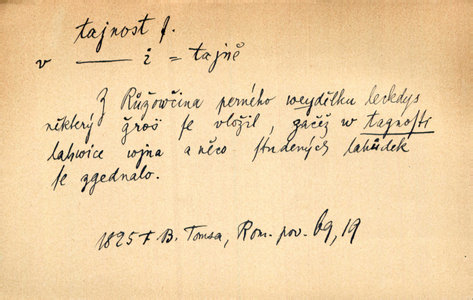 tajnost f.
v —— i = tajně
Z Růžowčina perného weydělku leckdys
některý groš se vložil, začěž w tagnosti
lahwice wjna a něco studených lahůdek
se zgednalo.
1825 F. B. Tomsa, Rom. pov. 69, 19